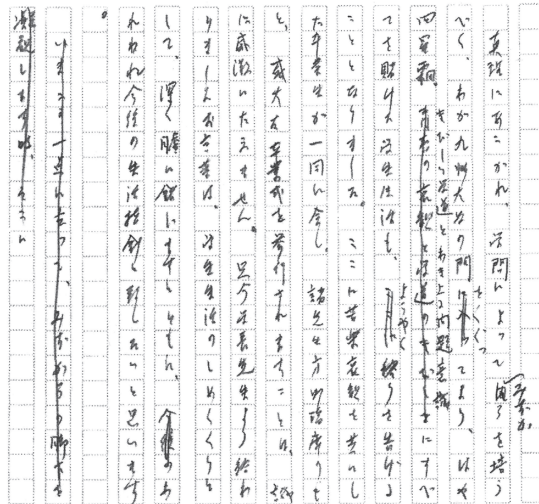 真理にあこがれ、学問によって自らを培う
べく、わが九州大学の門をくぐってより、はや
四星霜。きびしい学道とわき上る問題意識にすべ
てを賭けた学生生活も、ようやく終りを告げる
こととなりました。ここに苦楽哀歓を共にし
た卒業生が一同に会し、諸先生方の御臨席のも
と、盛大な卒業式を挙行されますことは、誠
に感激にたえません。只今学長先生より給わ
りましたお言葉は、学生生活のしめくくりと
して、深く膽に銘じますとともに、われ
われ今後の生活指針と致したいと思います
。
いまこの一点に立って、みずからの脚下を
凝視します時、そこに